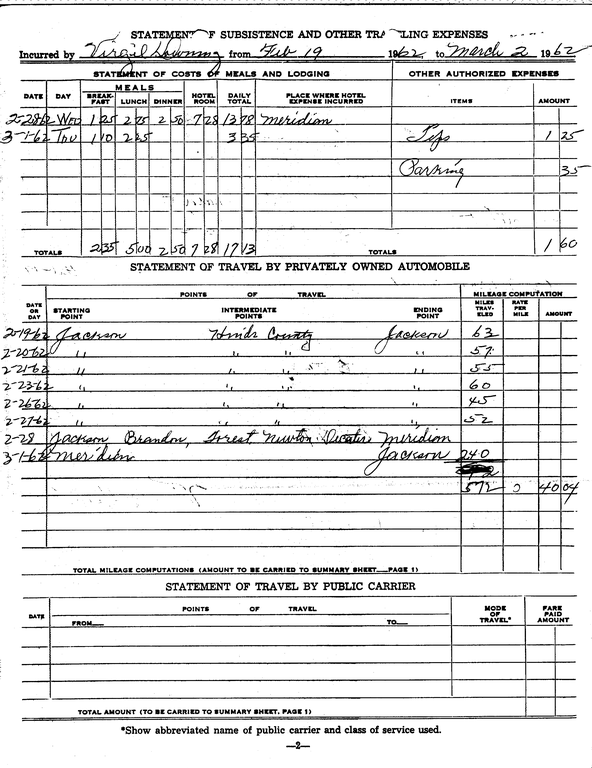 STATEMENT OF SUBSISTENCE AND OTHER TRAVELING EXPENSES
Incurred by Virgil Downing from Feb 19 1962 to March 2 1962
STATEMENT OF COSTS OF MEALS AND LODGING OTHER AUTHORIZED EXPENSES
DATE DAY MEALS BREAK-FAST LUNCH DINNER HOTEL ROOM DAILY TOTAL PLACE WHERE HOTEL EXPENSE INCURRED ITEMS AMOUNT
2-28-62 WED 1 25 2 75 2 50 7 28 13 78 Meridian
3-1-62 THU 1 10 2 25 3 35 Tips 1 25
Parking 35
TOTALS 2 35 5 00 2 50 7 28 17 13 TOTALS 1 60
STATEMENT OF TRAVEL BY PRIVATELY OWNED AUTOMOBILE
DATE OR DAY POINTS OF TRAVEL MILEAGE COMPUTATION
STARTING POINT INTERMEDIATE POINTS ENDING POINT MILES TRAV-ELED RATE PER MILE AMOUNT
2-19-62 Jackson Hinds County Jackson 63
2-20-62 " " " " 57
2-21-62 " " " 55
2-23-62 " " " 60
2-26-62 " " " 45
2-27-62 " " " 52
2-28 Jackson Brandon, Forest Newton Decatur Meridian
3-1-62 Meridian Jackson 240
572 40 04
TOTAL MILEAGE COMPUTATIONS (AMOUNT TO BE CARRIED TO SUMMARY SHEET—PAGE 1)
STATEMENT OF TRAVEL BY PUBLIC CARRIER
DATE POINTS OF TRAVEL MODE OF TRAVEL* FARE PAID AMOUNT
FROM TO
TOTAL AMOUNT (TO BE CARRIED TO SUMMARY SHEET. PAGE 1)
*Show abbreviated name of public carrier and class of service used.
—2—